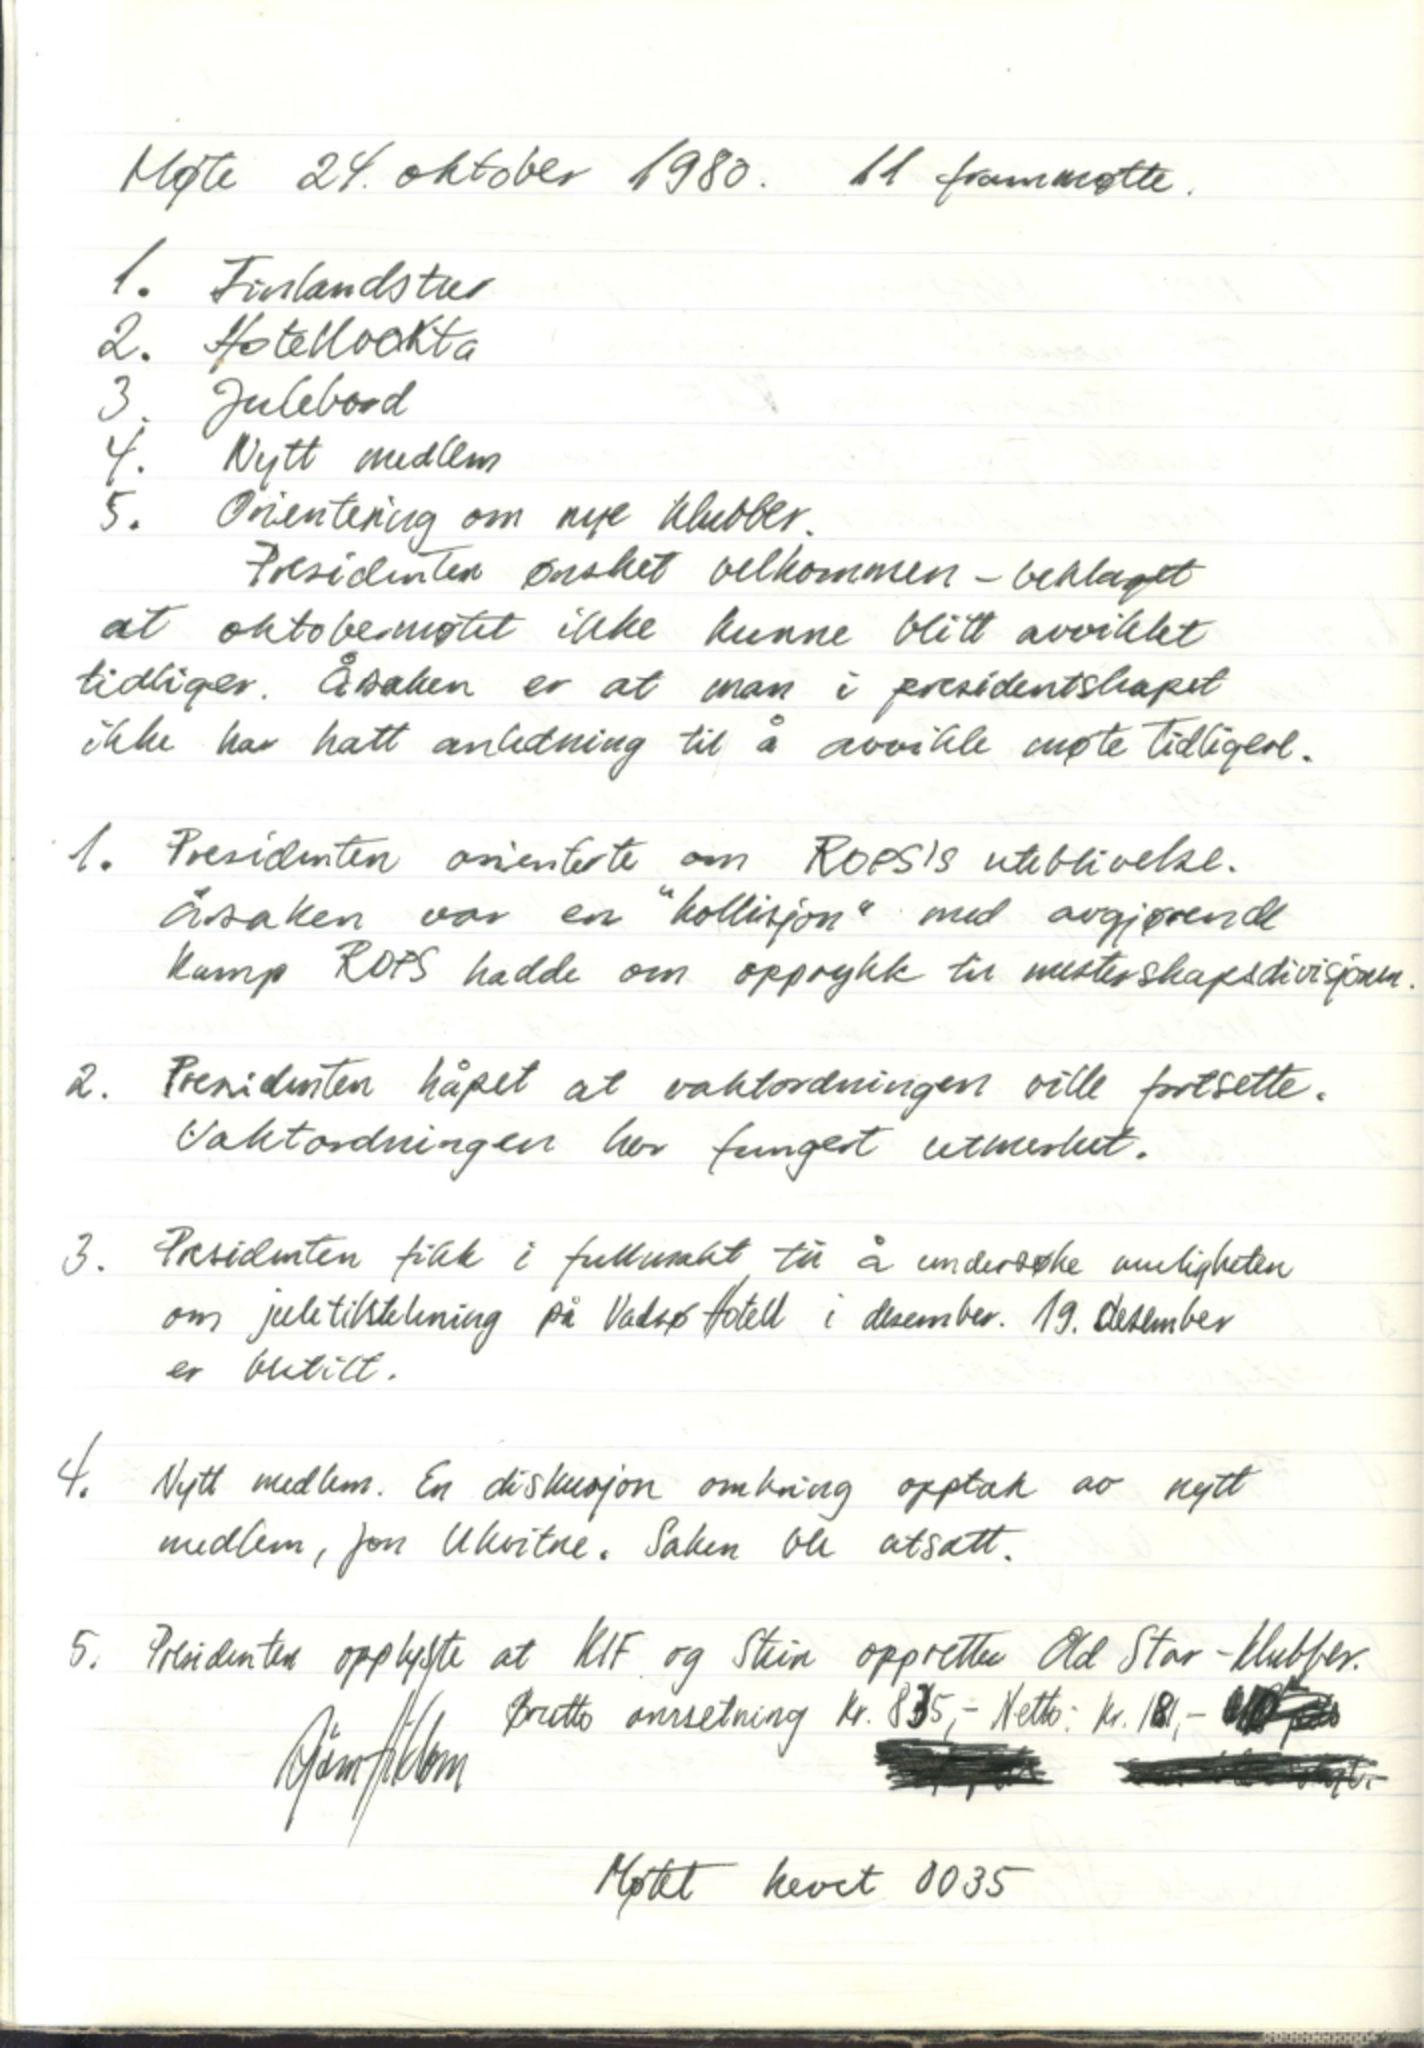 Møte 24. oktober 1980. 11 frammøtte.
1. Finlandstur
2. Hotellvakta
3. Julebord
4. Nytt medlem
5. Orientering om nye klubber.
Presidenten ønsket velkommen - beklaget
at oktobermøtet ikke kunne blitt avviklet
tidliger. Årsaken er at man i presidentskapet
ikke har hatt anledning til å avvikle møte tidligere.
1. Presidenten orienterte om ROPS's uteblivelse.
Årsaken var en "kollisjon" med avgjørende
kamp ROPS hadde om opprykk til mesterskapsdivisjonen.
2. Presidenten håpet at vaktordningen ville fortsette.
Vaktordningen har fungert utmerket.
3. Presidenten fikk i fullmakt til å undersøke muligheten
om juletilstelning på Vadsø Hotell i desember. 19. desember
er bestilt.
4. Nytt medlem. En diskusjon omkring opptak av nytt
medlem, Jon Ukvitne. Saken ble utsatt.
5. Presidenten opplyste at KIF og Stein oppretter Old Star-klubber.
Brutto omsetning kr. 835,- Netto: kr. 181,-
Møtet hevet 0035